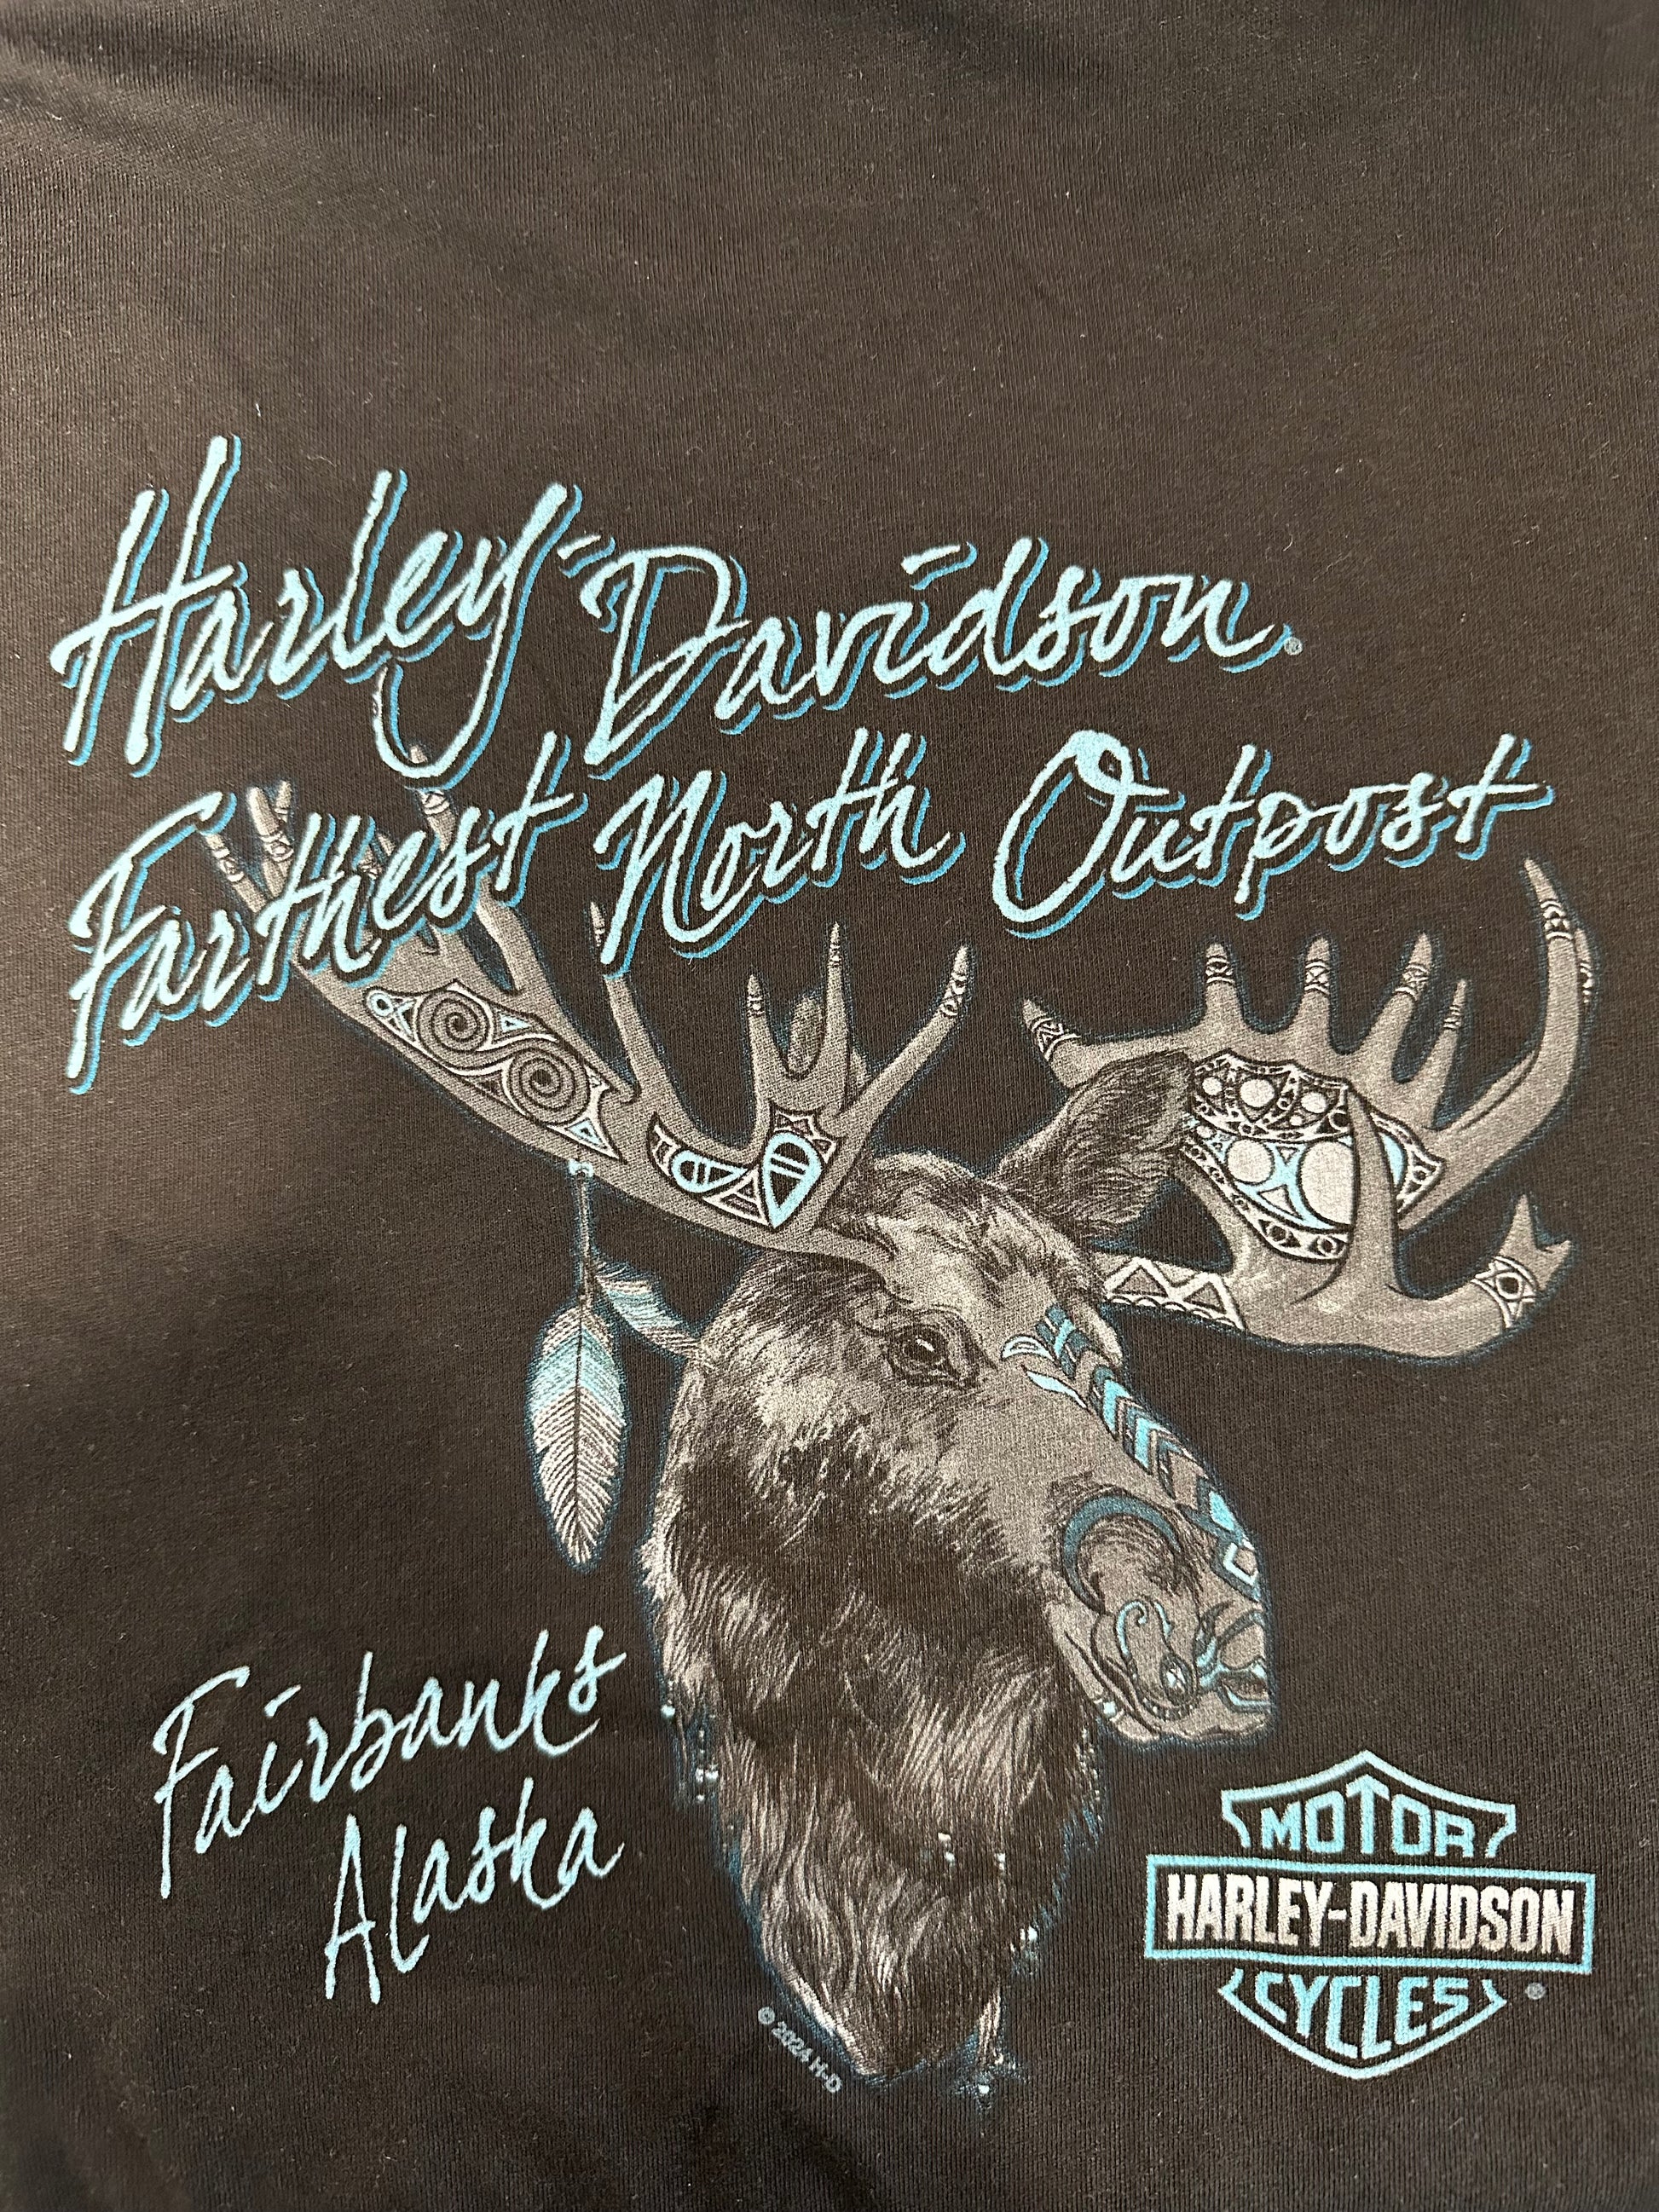 Harley-Davidson®
Farthest North Outpost
Fairbanks
Alaska
MOTOR
HARLEY-DAVIDSON
CYCLES®
© 2024 H-D